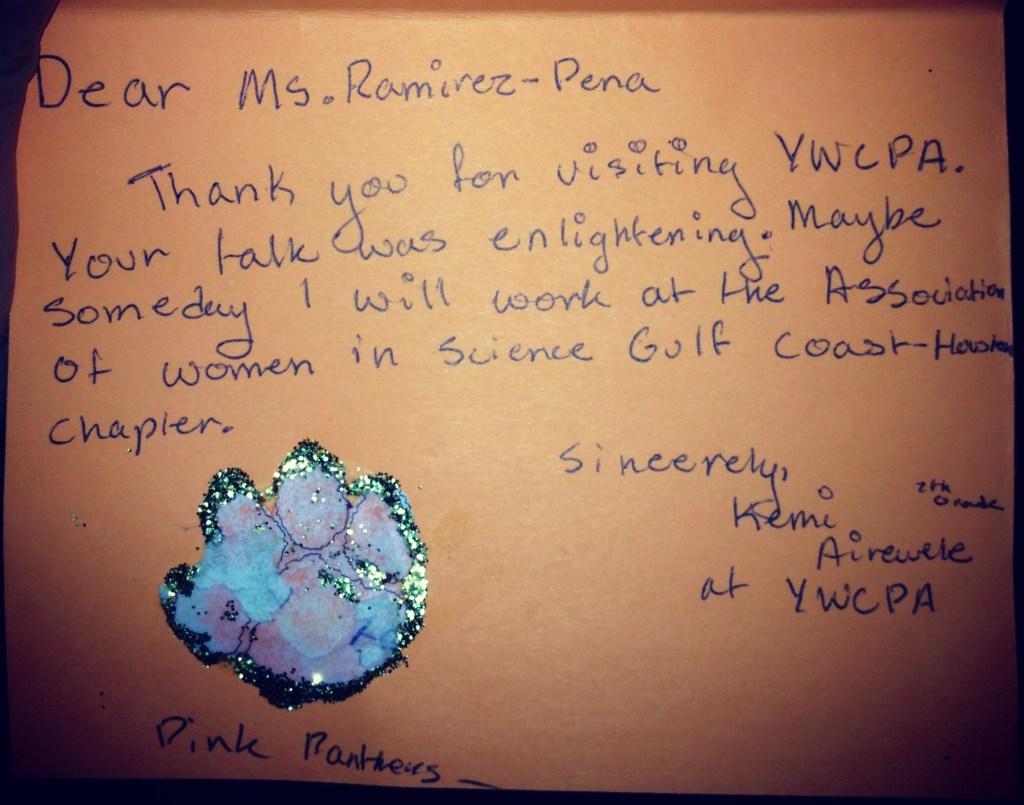 Dear Ms. Ramirez-Pena
Thank you for visiting YWCPA.
Your talk was enlightening. Maybe
someday I will work at the Association
of women in science Gulf Coast-Houston
chapter.
Sincerely,
Kemi
Grade
Airewele
at YWCPA
Pink Panthers